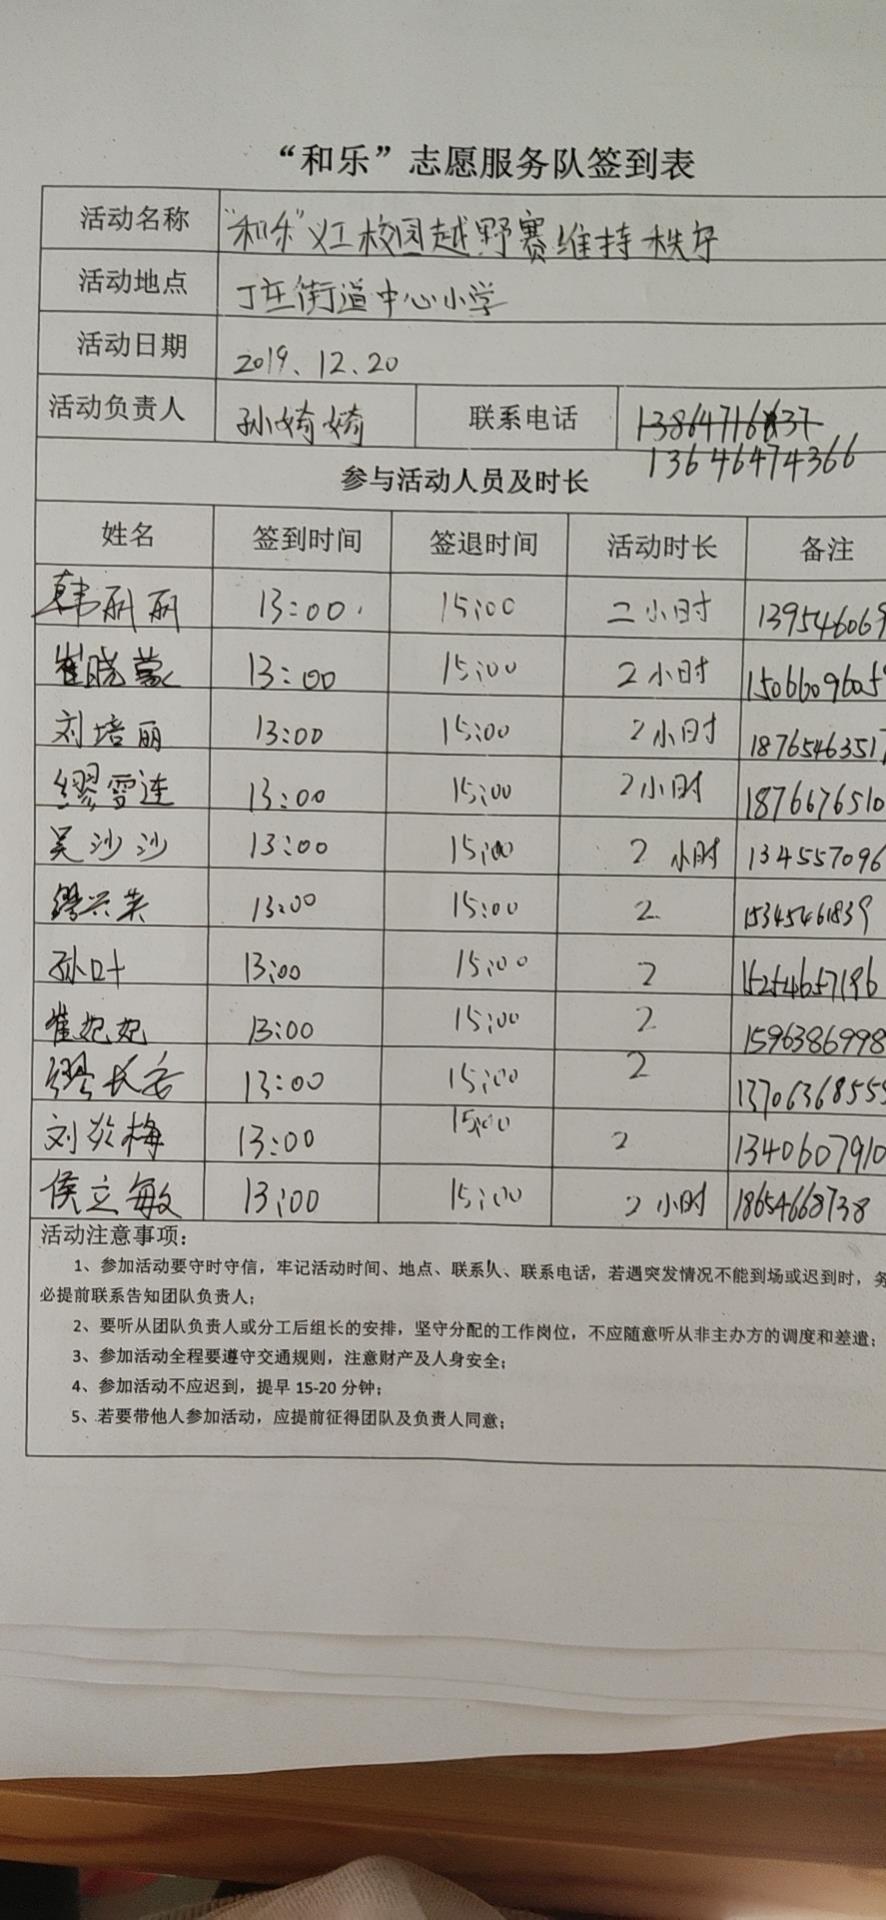 “和乐”志愿服务队签到表
活动名称 “和乐”义工校园越野赛维持秩序
活动地点 丁庄街道中心小学
活动日期 2019.12.20
活动负责人 孙婍婍 联系电话
13646474366
参与活动人员及时长
姓名 签到时间 签退时间 活动时长 备注
韩丽丽 13:00 15:00 二小时 139546069
崔晓蒙 13:00 15:00 2小时 1506609605
刘培丽 13:00 15:00 2小时 1876546351
缪雪连 13:00 15:00 2小时 1876676510
吴沙沙 13:00 15:00 2小时 134557096
缪兴英 13:00 15:00 2 15345461839
孙叶 13:00 15:00 2 15254657196
崔妃妃 13:00 15:00 2 1596386998
缪长安 13:00 15:00 2 1370636855
刘炎梅 13:00 15:00 2 1340607910
侯立敏 13:00 15:00 2小时 18654668738
活动注意事项:
1、参加活动要守时守信，牢记活动时间、地点、联系人、联系电话，若遇突发情况不能到场或迟到时，务
必提前联系告知团队负责人；
2、要听从团队负责人或分工后组长的安排，坚守分配的工作岗位，不应随意听从非主办方的调度和差遣；
3、参加活动全程要遵守交通规则，注意财产及人身安全；
4、参加活动不应迟到，提早15-20分钟；
5、若要带他人参加活动，应提前征得团队及负责人同意；